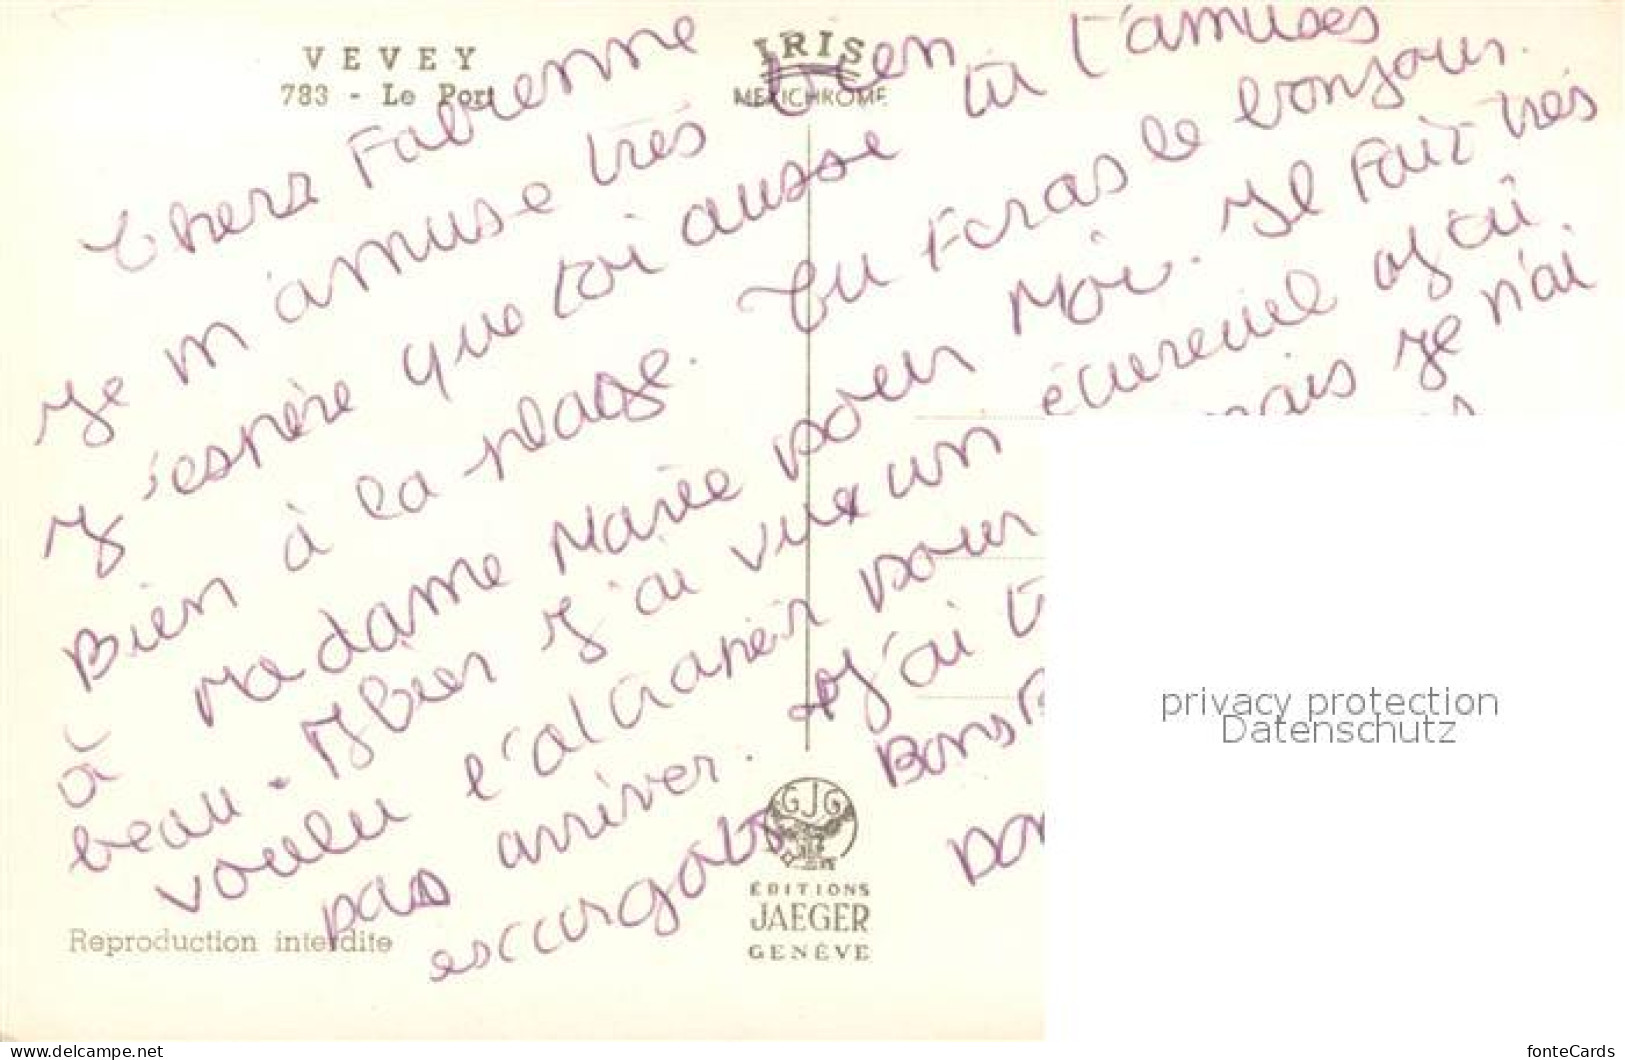 VEVEY
783 - Le Port
IRIS
MEXICHROME
Chere Fabienne
Je m'amuse très bien
J'espère que toi ausse tu t'amuses
Bien à la plage. Tu feras le bonjour.
à Madame Marie pour Moi. Il Fait très
beau. Hier j'ai vue un écureuil j'ai
voulu l'atraper mais je n'ai
pas arriver. j'ai
escargots. Bons
ÉDITIONS
JAEGER
GENÈVE
Reproduction interdite
privacy protection
Datenschutz
www.delcampe.net
fonteCards